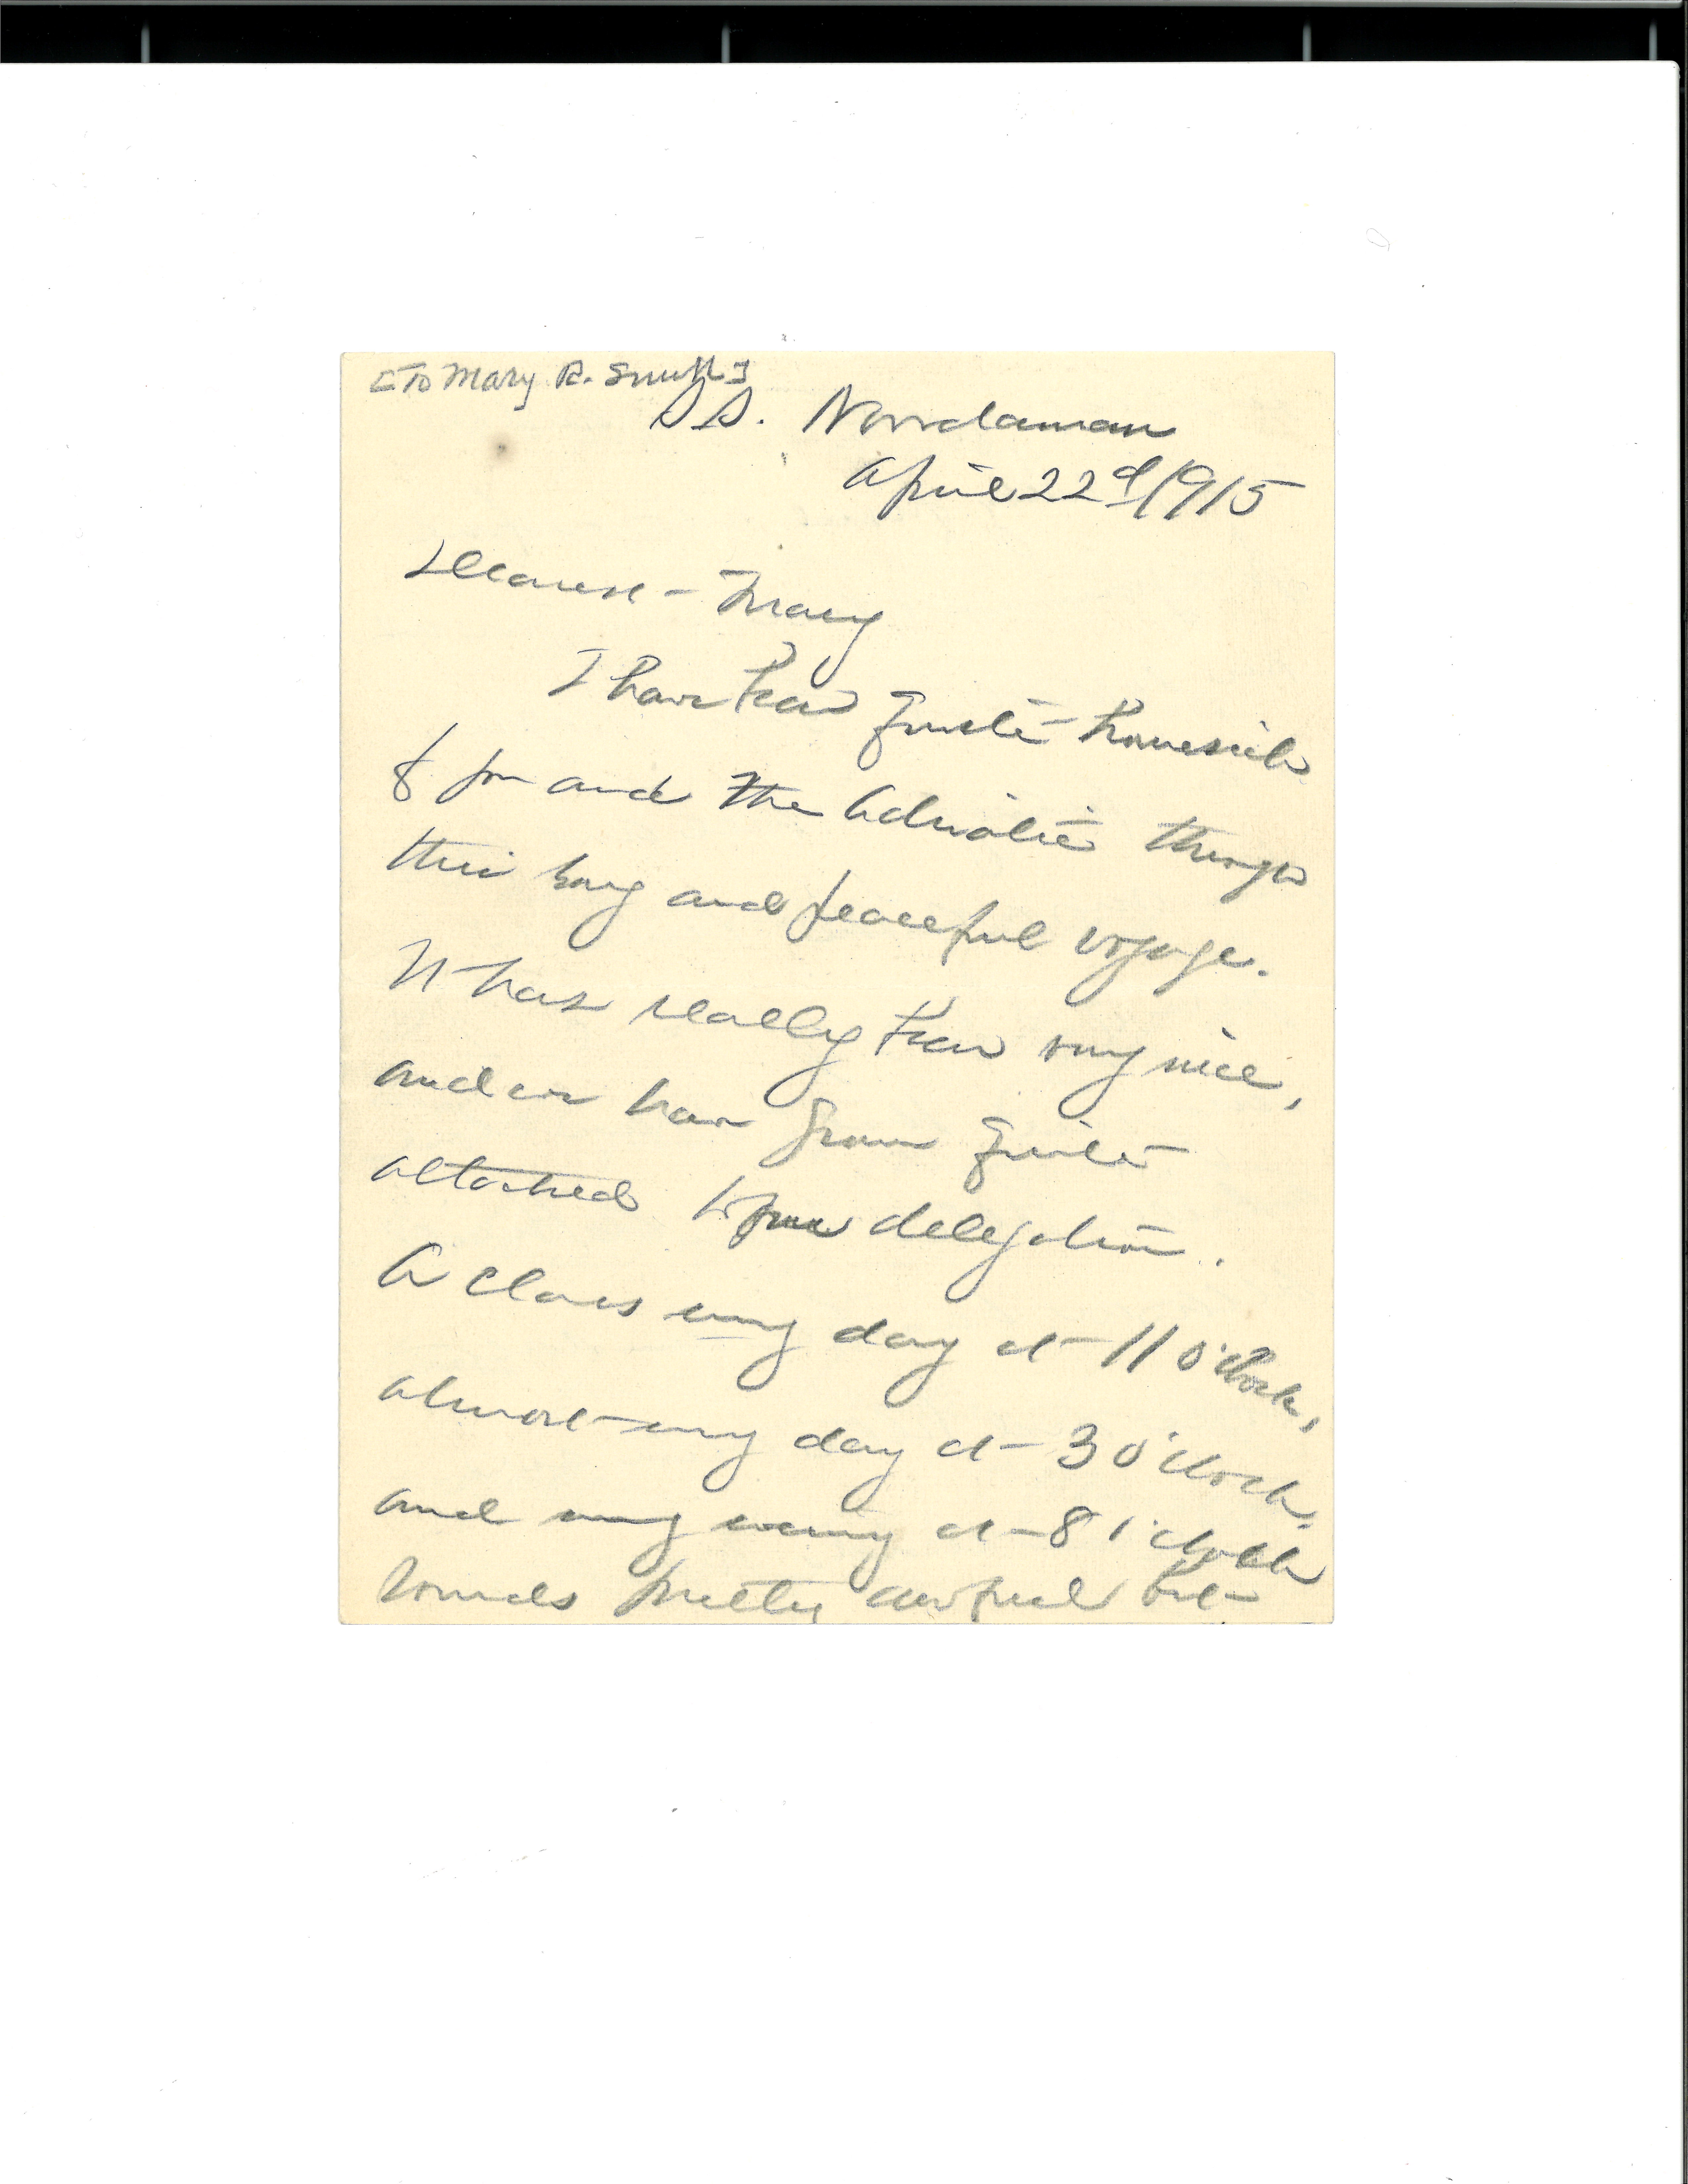 [To Mary R. Smith]
S.S. Noordam
April 22d/1915
Dearest Mary
I have been quite homesick
for you and the Adriatic through
this long and peaceful voyage.
It has really been very nice,
and we have grown quite
attached to our delegation.
A class every day at 11 o'clock,
almost every day at 3 o'clock
and every evening at 8 o'clock
sounds pretty awful but